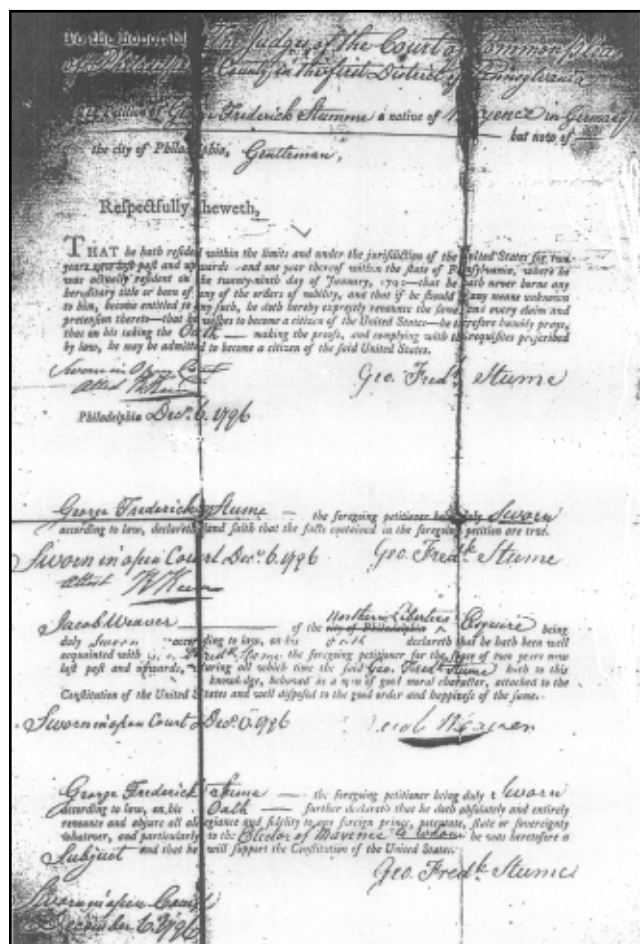 To the Honorable The Judges of the Court of Common Pleas
of Philadelphia County in the first District of Pennsylvania
Petition of George Frederick Stumme a native of Mayence in Germany
but now of
the city of Philadelphia, Gentleman,
Respectfully sheweth,
THAT he hath resided within the limits and under the jurisdiction of the United States for two
years now last past and upwards and one year thereof within the state of Pennsylvania, where he
was actually resident on the twenty-ninth day of January, 1795—that he hath never borne any
hereditary title or been of any of the orders of nobility, and that if he should by any means unknown
to him, become entitled to any such, he doth hereby expressly renounce the same, and every claim and
pretension thereto—that he wishes to become a citizen of the United States—he therefore humbly prays,
that on his taking the Oath — making the proofs, and complying with the requisites prescribed
by law, he may be admitted to become a citizen of the said United States.
Sworn in Open Court
attest
Geo. Fredk. Stume
Philadelphia Decr. 6. 1796
George Frederick Stume — the foregoing petitioner being duly Sworn
according to law, declareth and saith that the facts contained in the foregoing petition are true.
Sworn in open Court Decr. 6. 1796 Geo. Fredk. Stume
attest
Jacob Weaver of the city of Philadelphia Northern Liberties Esquire being
duly sworn according to law, on his oath declareth that he hath been well
acquainted with Geo. Fredk Stume the foregoing petitioner for the space of two years now
last past and upwards, during all which time the said Geo. Fredk Stume hath to this
knowledge, behaved as a man of good moral character, attached to the
Constitution of the United States and well disposed to the good order and happiness of the same.
Sworn in open Court Decr. 6. 1796 Jacob Weaver
George Frederick Stume — the foregoing petitioner being duly Sworn
according to law, on his Oath — further declareth that he doth absolutely and entirely
renounce and abjure all allegiance and fidelity to any foreign prince, potentate, state or sovereignty
whatever, and particularly to the Elector of Mayence to whom he was heretofore a
Subject and that he will support the Constitution of the United States.
Geo. Fredk. Stume
Sworn in open Court
December 6. 1796